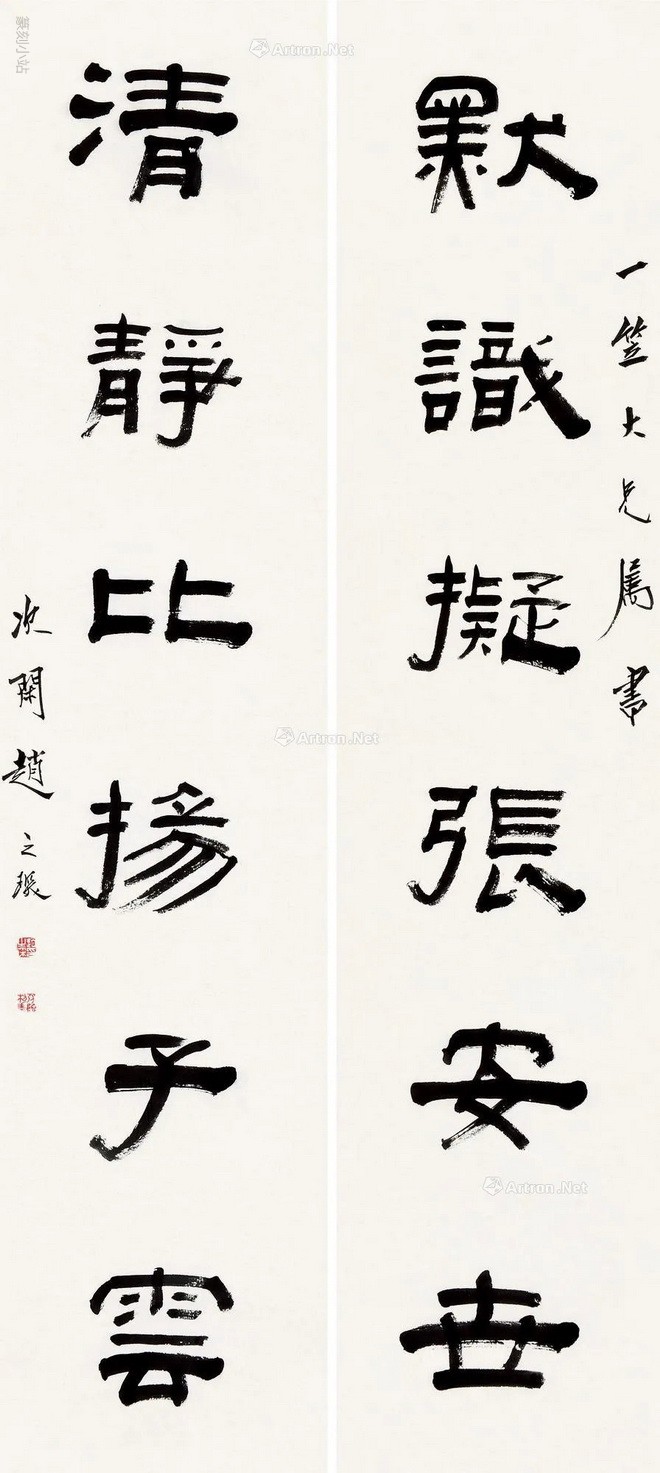 一笠大兄屬書
默識擬張安世
清靜比揚子雲
次閑趙之琛
篆刻小站
Artron.Net
Artron.Net
Artron.Net